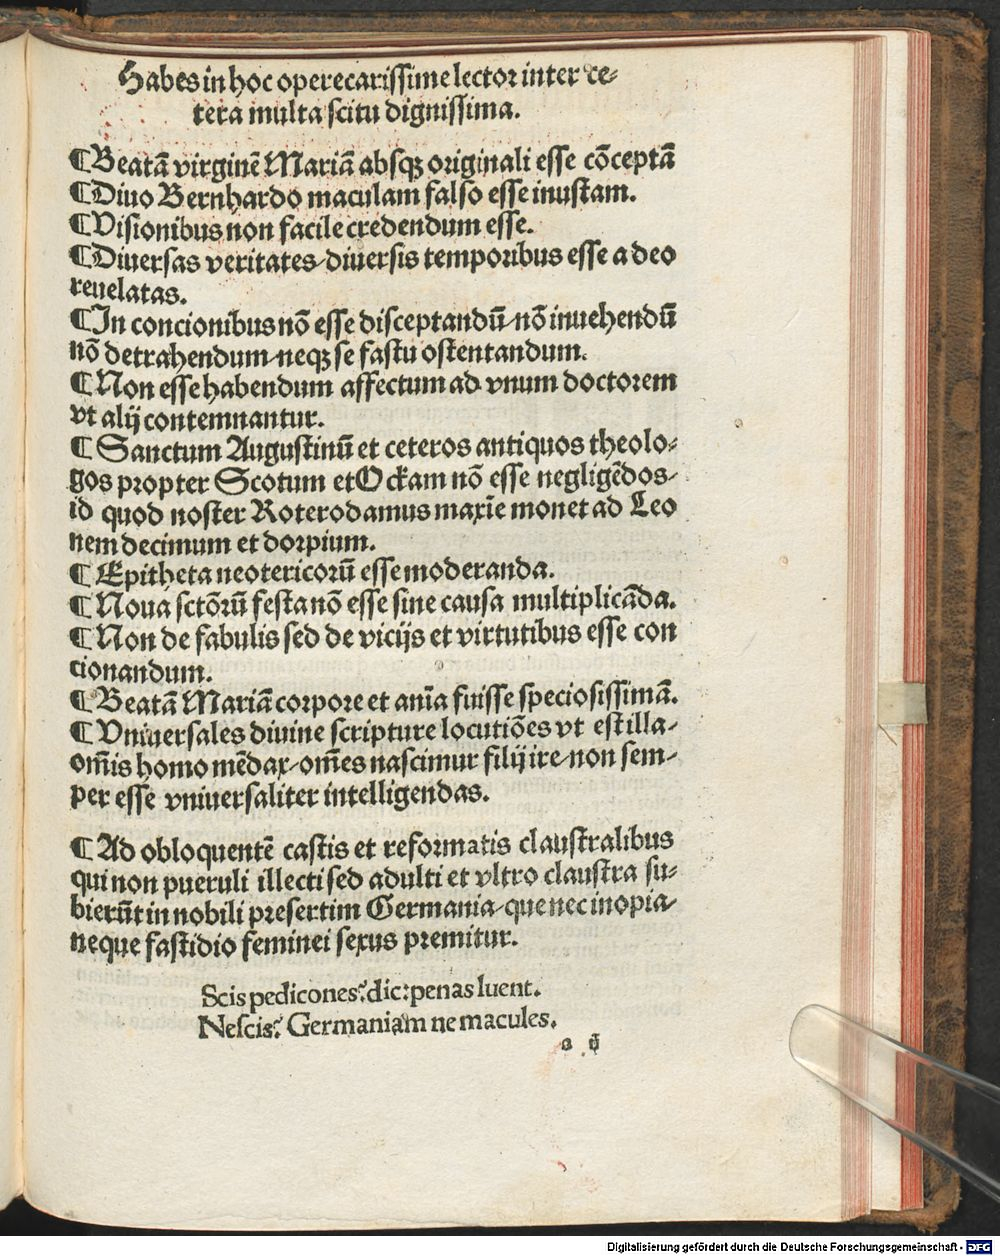 Habes in hoc opere carissime lector inter ce⸗
tera multa scitu dignissima.
¶ Beatā virginē Mariā absqꝫ originali esse cōceptā
¶ Diuo Bernhardo maculam falso esse inustam.
¶ Visionibus non facile credendum esse.
¶ Diuersas veritates/ diuersis temporibus esse a deo
reuelatas.
¶ In concionibus nō esse disceptandū/ nō inuehendū
nō detrahendum/ neqꝫ se fastu ostentandum.
¶ Non esse habendum affectum ad vnum doctorem
vt alij contemnantur.
¶ Sanctum Augustinū et ceteros antiquos theolo⸗
gos propter Scotum et Ockam nō esse negligēdos/
id quod noster Roterodamus maxīe monet ad Leo
nem decimum et dorpium.
¶ Epitheta neotericorū esse moderanda.
¶ Noua sctōrū festa nō esse sine causa multiplicāda.
¶ Non de fabulis sed de vicijs et virtutibus esse con
cionandum.
¶ Beatā Mariā corpore et anīa fuisse speciosissimā.
¶ Vniuersales diuine scripture locutiōes vt est illa/
om̄is homo mēdax/ om̄es nascimur filij ire/ non sem⸗
per esse vniuersaliter intelligendas.
¶ Ad obloquentē castis et reformatis claustralibus
qui non pueruli illecti sed adulti et vltro claustra su⸗
bierūt in nobili presertim Germania/ que nec inopia/
neque fastidio feminei sexus premitur.
Scis pedicones? dic: penas luent.
Nescis? Germaniam ne macules.
a ij
Digitalisierung gefördert durch die Deutsche Forschungsgemeinschaft - DFG